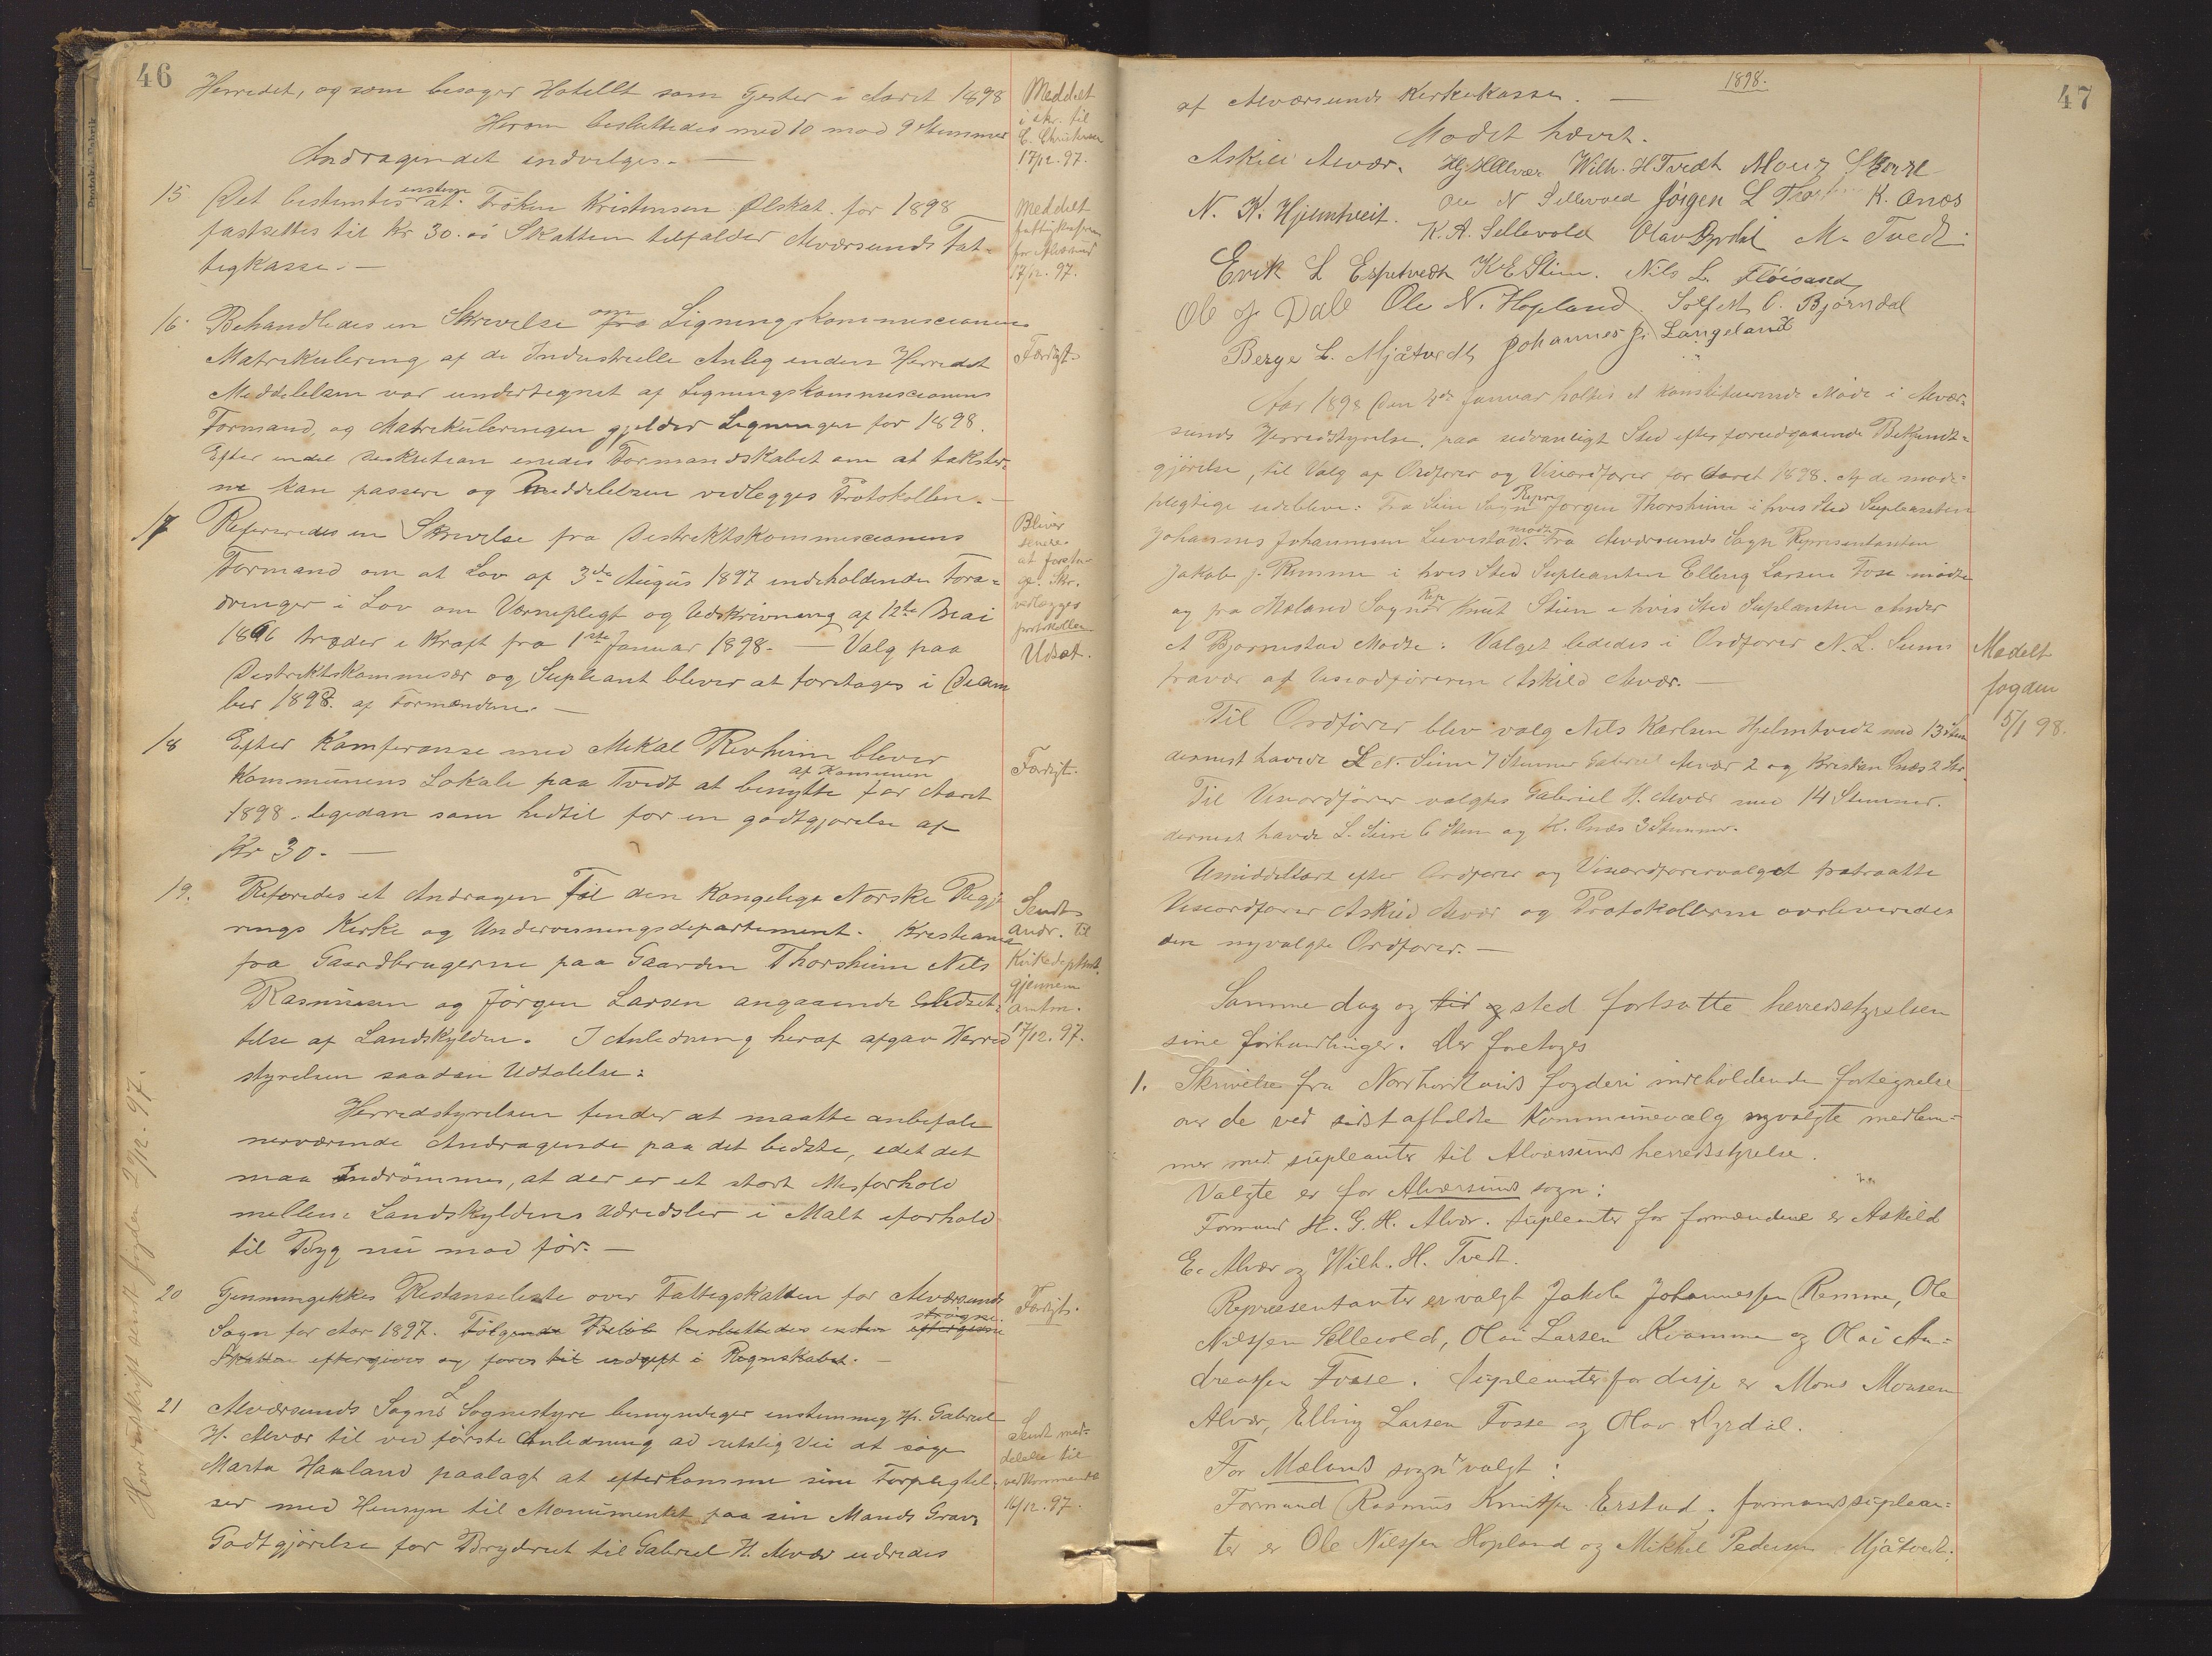 46
Herredet, og som besøger Hotellt som Gjester i Aaret 1898
Herom besluttedes med 10 mod 9 Stemmer
Andragendet indvilges. —
Meddelt
i skr. til
C. Christensen
17/12. 97.
15 Det bestemtes enstem at Frøken Kristensen Ølskat for 1898
fastsettes til Kr 30. Skatten tilfalder Alværsunds Fat-
tigkasse. —
Meddelt
fattigkassen
for Alværsund
17/12. 97.
16 Behandledes en Skrivelse om fra Ligningskommissionens
Matrikulering af de Industrielle Anleg inden Herredet
Meddelelsen var undertegnet af Ligningskommissionens
Formand, og Matrikuleringen gjelder Ligningen for 1898.
Efter endel Diskution enedes Formandskabet om at takster-
ne kan passere og Meddelelsen vedlegges Protokollen. —
Færdigt.
17 Refereredes en Skrivelse fra Destriktskommissionens
Formand om at Lov af 3de August 1897 indeholdende Foran-
dringer i Lov om Vernepligt og Udskrivning af 12te Mai
1866 træder i Kraft fra 1ste Januar 1898. — Valg paa
Destriktskommisær og Supleant bliver at foretages i Decem
ber 1898 af Formændene. —
Bliver
senere
at foreta-
ge. Skr.
vedlægges
protokollen
Udsat.
18 Efter Konferanse med Mikal Revheim blever
Kommunens Lokale paa Tvedt at benytte af Komunen for Aaret
1898. ligedan som hidtil for en godtgjørelse af
Kr 30. —
Færdigt.
19. Referedes et Andragen Til den Kongelige Norske Regje
rings Kirke og Undervisningsdepartement. Kristiania
fra Gaardbrugerne paa Gaarden Thorsheim Nils
Rasmussen og Jørgen Larsen angaaende Nedset-
telse af Landskylden. I Anledning heraf afgav Herred
styrelsen saadan Udtalelse:
Herredstyrelsen finder at maatte anbefale
nerværende Andragende paa det bedste, idet det
maa Indrømmes, at der er et stort Misforhold
mellem Landskyldens Udredsler i Malt iforhold
til Byg nu mod før. —
Sendt
andr. til
Kirkedeptmt.
gjennem
amtm.
17/12. 97.
20 Gjennemgikkes Restanseliste over Fattigskatten for Alværsunds
Sogn for Aar 1897. Følgende Beløb besluttedes enstem eftergivne strøgne
Skatten eftergives og føres til udgift i Regnskabet. —
Færdigt.
21 Alværsunds Sogns Sognestyre bemyndiger enstemmig Hr. Gabriel
H. Alvær til ved første Anledning ad retslig Vei at søge
Marta Haaland paalagt at efterkomme sine Forpligtel-
ser med Hensyn til Monumentet paa sin Mands Grav
Godtgjørelse for Bryderiet til Gabriel H. Alvær udredes
Sendt med-
delelse til
vedkommende
16/12. 97.
Hoveroskrift sendt fogden 2/12. 97.
1898.
47
af Alværsunds Kirkekasse. —
Mødet hævet.
Askild Alvær. HGHAlvær Wilh. H Tvedt Mons
N. K. Hjelmtveit. Ole N Sellevold Jørgen L K. Anos
K. A. Sellevold Olav Dyrdal M. Tvedt
Erik L Espetvedt K E Stien. Nils L. Fløisand
Ole J Dale Ole N. Hopland Solfest O. Bjørndal
Berge L. Mjåtvedt Johannes J. Langeland
Aar 1898 den 4de Januar holdtes et Konstituerende Møde i Alvær-
sunds Herredstyrelse. paa sedvanligt Sted efter forudgaaende Bekjendt-
gjørelse, til Valg af Ordfører og Viseordfører for Aaret 1898. Af de møde-
pligtige udebleve: Fra Seim Sogn Repr Jørgen Thorsheim i hvis Sted Supleanten
Johannes Johannesen mødte. Fra Alværsunds Sogn Representanten
Jakob J. Remme i hvis Sted Supleanten Elling Larsen Fose mødte
og fra Meland Sogn Rep Knut Stien i hvis Sted Suplanten Ander
A Bjørnestad Mødte. Valget lededes i Ordfører N. L. Seims
fravær af Viseordføreren Askild Alvær. —
Til Ordfører blev valg Nils Karlsen Hjelmtvedt med 13 Stem
dernest havde L. N. Seim 7 Stemmer Gabriel Alvær 2 og Kristian Onæs 2 St.
Til Viseordfører valgtes Gabriel H. Alvær med 14 Stemmer.
dernest havde L. Seim 6 Stem og K. Onæs 3 Stemmer.
Umiddelbart efter Ordfører og Viseordførervalget fratraatte
Viseordfører Askild Alvær og Protokollerne overleveredes
den nyvalgte Ordfører. —
Medelt
fogden
5/1 98.
Samme dag og tid og sted fortsatte herredsstyrelsen
sine forhandlinger. Der foretoges
1. Skrivelse fra Nordhordlands fogderi indeholdende fortegnelse
over de ved sidst afholdte Kommunevalg nyvalgte medlem-
mer med supleanter til Alværsunds herredsstyrelse.
Valgte er for Alværsunds sogn:
Formand H. G. H. Alvær. Supleanter for formændene er Askild
E. Alvær og Wilh. H. Tvedt.
Repræsentanter er valgt Jakob Johannessen Remme, Ole
Nilssen Sellevold, Olai Larsen Kvamme og Olai An-
dreassen Fosse. Supleanter for disse er Mons Monsen
Alvær, Elling Larsen Fosse og Olav Dyrdal.
For Mælands sogn valgt:
Formand Rasmus Knutsen Erstad. formandssuplean-
ter er Ole Nilssen Hopland og Mikkel Pedersen Mjåtvedt.